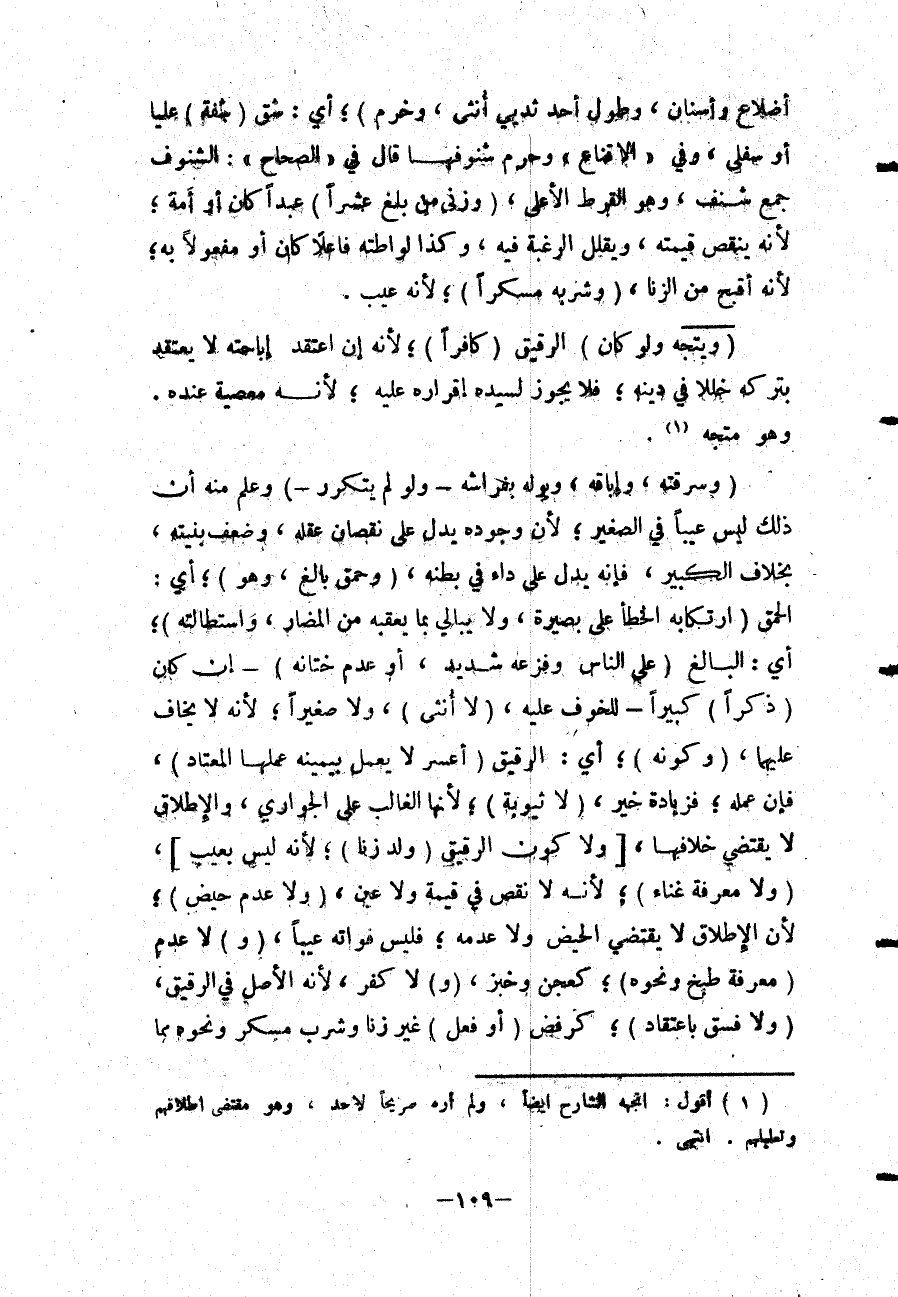 أضلاع وأسنان ، وطول أحد ثديي أُنثى ، وخرم ) ؛ أي : شق ( شفة ) عليا
أو سفلى ، وفي « الإقناع » وخرم شنوفهــا قال في « الصحاح » : الشنوف
جمع شـنف ، وهو القرط الأعلى ، ( وزنى من بلغ عشراً ) عبداً كان أو أَمة ؛
لأنه ينقص قيمته ، ويقلل الرغبة فيه ، وكذا لواطته فاعلًا كان أو مفعولاً به؛
لأنه أقبح من الزنا ، ( وشربه مسكراً ) ؛ لأنه عيب .
( ويتجه ولو كان ) الرقيق ( كافراً ) ؛ لأنه إن اعتقد إباحته لا يعتقد
بتركه خللا في دينه ؛ فلا يجوز لسيده إقراره عليه ؛ لأنـــه معصية عنده .
وهو متجه (١) .
( وسرقته ، وإباقه ، وبوله بفراشه – ولو لم يتكرر –) وعلم منه أن
ذلك ليس عيباً في الصغير ؛ لأن وجوده يدل على نقصان عقله ، وضعف بنيته ،
بخلاف الكبير ، فإنه يدل على داء في بطنه ، ( وحمق بالغ ، وهو ) ؛ أي :
الحمق ( ارتكابه الخطأ على بصيرة ، ولا يبالي بما يعقبه من المضار ، وَاستطالته )؛
أي : البــالغ ( على الناس وفزعه شـديد ، أو عدم ختانه ) – إن كان
( ذكراً ) كبيراً – للخوف عليه ، ( لا أُنثى ) ، ولا صغيراً ؛ لأنه لا يخاف
عليها ، ( وكونه ) ؛ أي : الرقيق ( أعسر لا يعمل بيمينه عملهـا المعتاد ) ،
فإن عمله ؛ فزيادة خير ، ( لا ثيوبة ) ؛ لأنها الغالب على الجواري ، والإطلاق
لا يقتضي خلافهـا ، [ ولا كون الرقيق ( ولد زنا ) ؛ لأنه ليس بعيب ] ،
( ولا معرفة غناء ) ؛ لأنـه لا نقص في قيمة ولا عين ، ( ولا عدم حيض ) ؛
لأن الإطلاق لا يقتضي الحيض ولا عدمه ؛ فليس فواته عيباً ، ( و ) لا عدم
( معرفة طبخ ونحوه ) ؛ كعجن وخبز ، (و) لا كفر ، لأنه الأصل في الرقيق،
( ولا فسق باعتقاد ) ؛ كرفض ( أو فعل ) غير زنا وشرب مسكر ونحوه مما
( ١ ) أقول : اتجهه الشارح ايضاً ، ولم أره صريحاً لاحد ، وهو مقتضى اطلاقهم
وتعليلهم . انتهى .
–١٠٩–